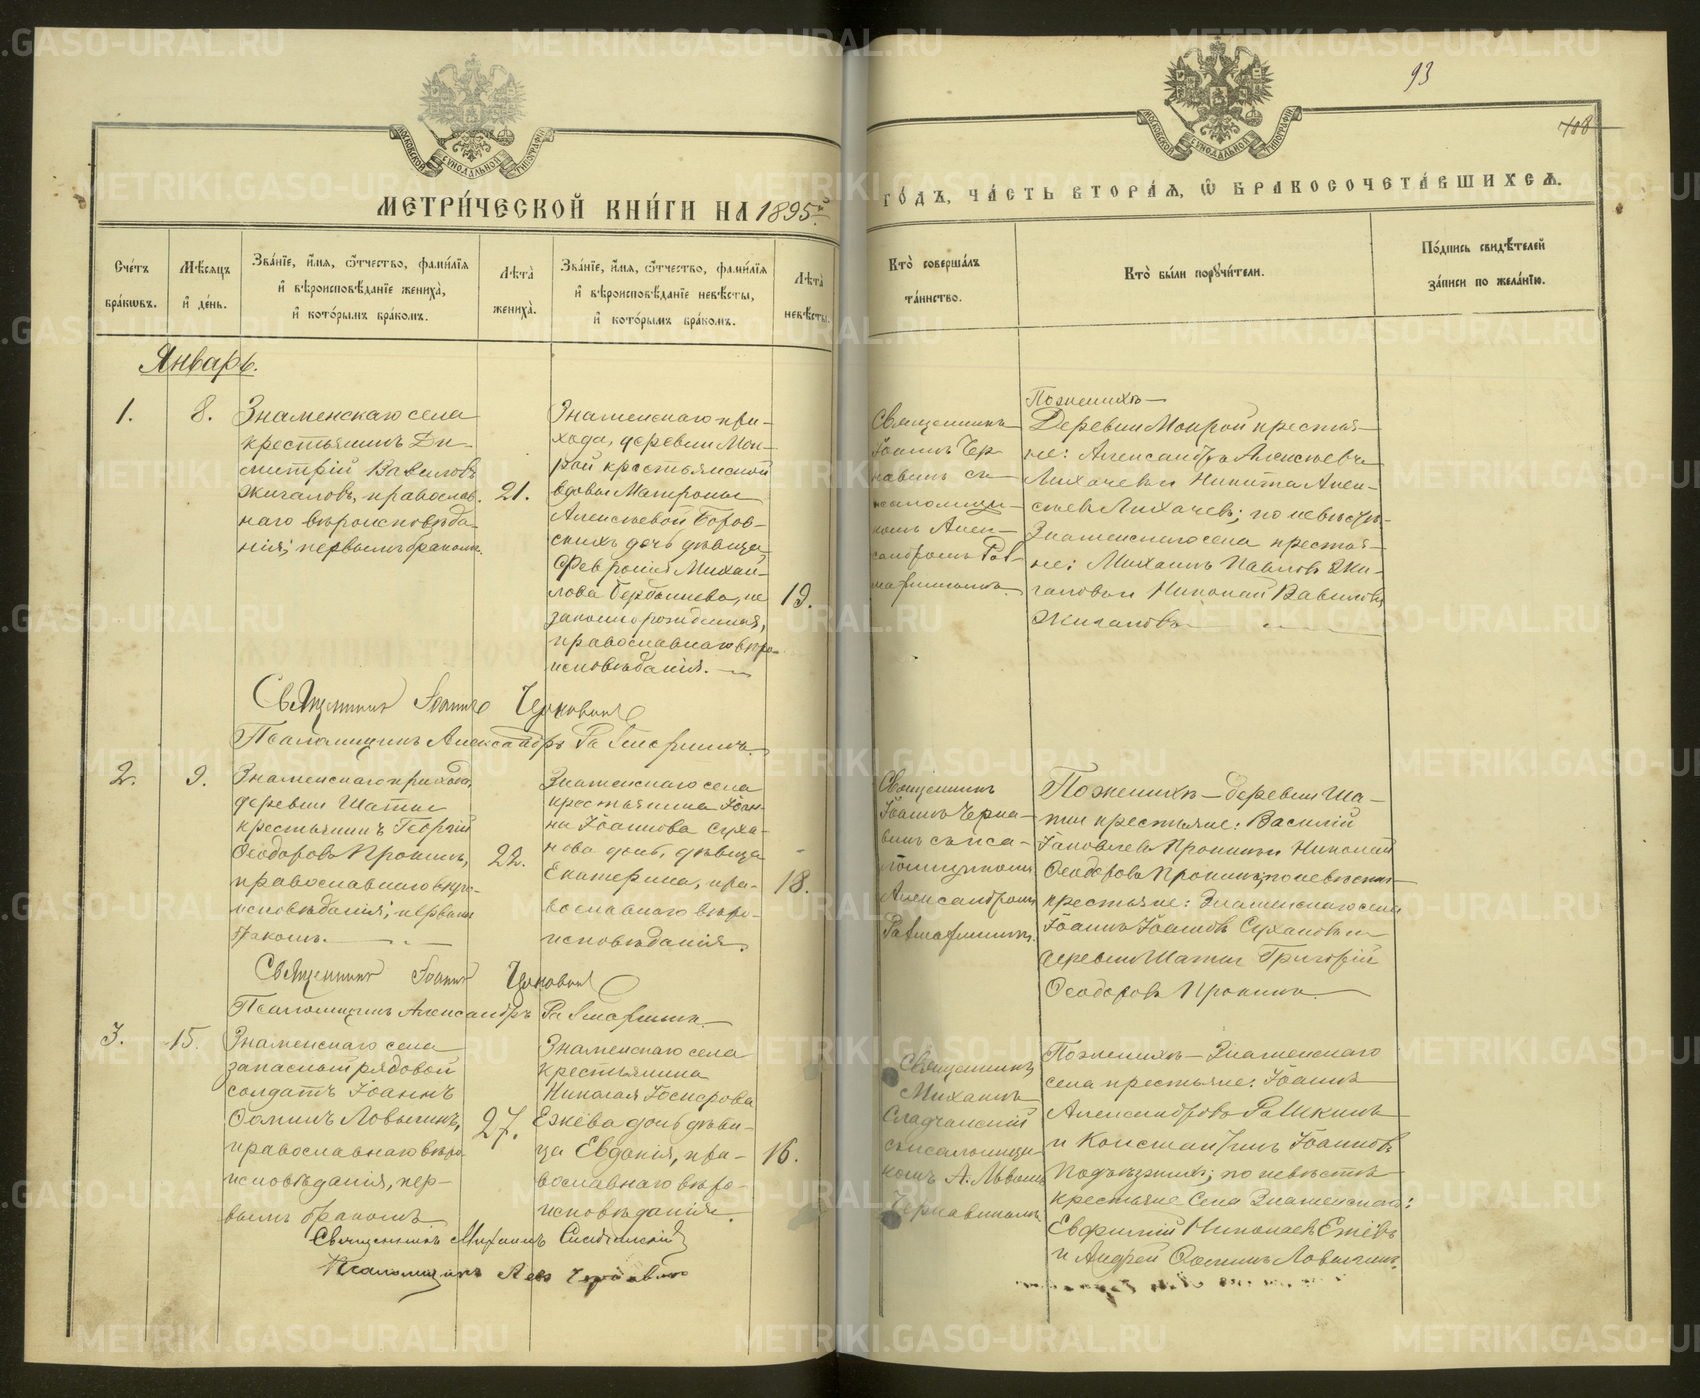 93
108
МОСКОВСКОЙ СѴНОДАЛЬНОЙ ТИПОГРАФІИ
МЕТРИ́ЧЕСКОЙ КНИ́ГИ НА 1895й
МОСКОВСКОЙ СѴНОДАЛЬНОЙ ТИПОГРАФІИ
ГО́ДЪ, ЧА́СТЬ ВТОРА́Ѧ, Ѽ БРАКОСОЧЕТА́ВШИХСѦ.
Сче́тъ
бра́кѡвъ.
Мѣ́сѧцъ
и҆ де́нь.
Зва́нїе, и҆́мѧ, ѻ҆́тчество, фами́лїѧ
и҆ вѣроисповѣ́данїе жениха̀,
и҆ кото́рымъ бра́комъ.
Лѣ́та̀
жениха̀.
Зва́нїе, и҆́мѧ, ѻ҆́тчество, фами́лїѧ
и҆ вѣроисповѣ́данїе невѣ́сты,
и҆ кото́рымъ бра́комъ.
Лѣ́та̀
невѣ́сты.
Кто̀ соверша́лъ
та́инство.
Кто̀ бы́ли порꙋчи́тели.
По́дпись свидѣ́телей
за́писи по жела́нїю.
Январь.
1.
8.
Знаменскаго села
крестьянинъ Ди-
митрій Вавиловъ
Жигаловъ, православ-
наго вѣроисповѣда-
нія; первымъ бракомъ.
21.
Знаменскаго при-
хода, деревни Мок-
рой крестьянской
вдовы Матроны
Алексѣевой Боров-
скихъ дочь дѣвица
Февронія Михай-
лова, не
законнорожденная,
православнаго вѣро-
исповѣданія.
19.
Священникъ
Іоаннъ Чер-
навинъ съ
псаломщи-
комъ Алек-
сандромъ
По женихѣ
Деревни Мокрой крестья-
не: Александръ Алексѣевъ
Лихачевъ и Никита Алек-
сѣевъ Лихачевъ; по невѣстѣ
Знаменскаго села крестья-
не: Михаилъ Павловъ Жи-
галовъ и Николай Вавиловъ
Жигаловъ
Священникъ Іоаннъ Чернавинъ
Псаломщикъ Александръ
2.
9.
Знаменскаго прихода,
деревни Шаты
крестьянинъ Георгій
Ѳеодоровъ Пронинъ,
православнаго вѣро-
исповѣданія; первымъ
бракомъ.
22.
Знаменскаго села
крестьянина Іоан-
на Іоаннова Суха-
нова дочь, дѣвица
Екатерина, пра-
вославнаго вѣро-
исповѣданія.
18.
Священникъ
Іоаннъ Черна-
винъ съ пса-
ломщикомъ
Александромъ
По женихѣ — деревни Ша-
ты крестьяне: Василій
Іаковлевъ Пронинъ и Николай
Ѳеодоровъ Пронинъ; по невѣстѣ
крестьяне: Знаменскаго села
Іоаннъ Іоанновъ Сухановъ и
деревни Шаты Григорій
Ѳеодоровъ Пронинъ.
Священникъ Іоаннъ Чернавинъ
Псаломщикъ Александръ
3.
15.
Знаменскаго села
запасный рядовой
солдатъ Іоаннъ
Ѳоминъ Ловыгинъ,
православнаго вѣро-
исповѣданія, пер-
вымъ бракомъ
27.
Знаменскаго села
крестьянина
Николая
Ежева дочь дѣви-
ца Евдокія, пра-
вославнаго вѣро-
исповѣданія.
16.
Священникъ
Михаилъ
съ псаломщи-
комъ
Чернавинымъ
По женихѣ — Знаменскаго
села крестьяне: Іоаннъ
Александровъ
и Константинъ Іоанновъ
по невѣстѣ
крестьяне Села Знаменскаго:
Евфимій Николаевъ Ежевъ
и Андрей Ѳоминъ Ловыгинъ.
Священникъ Михаилъ
Псаломщикъ Левъ Чернавинъ
METRIKI.GASO-URAL.RU